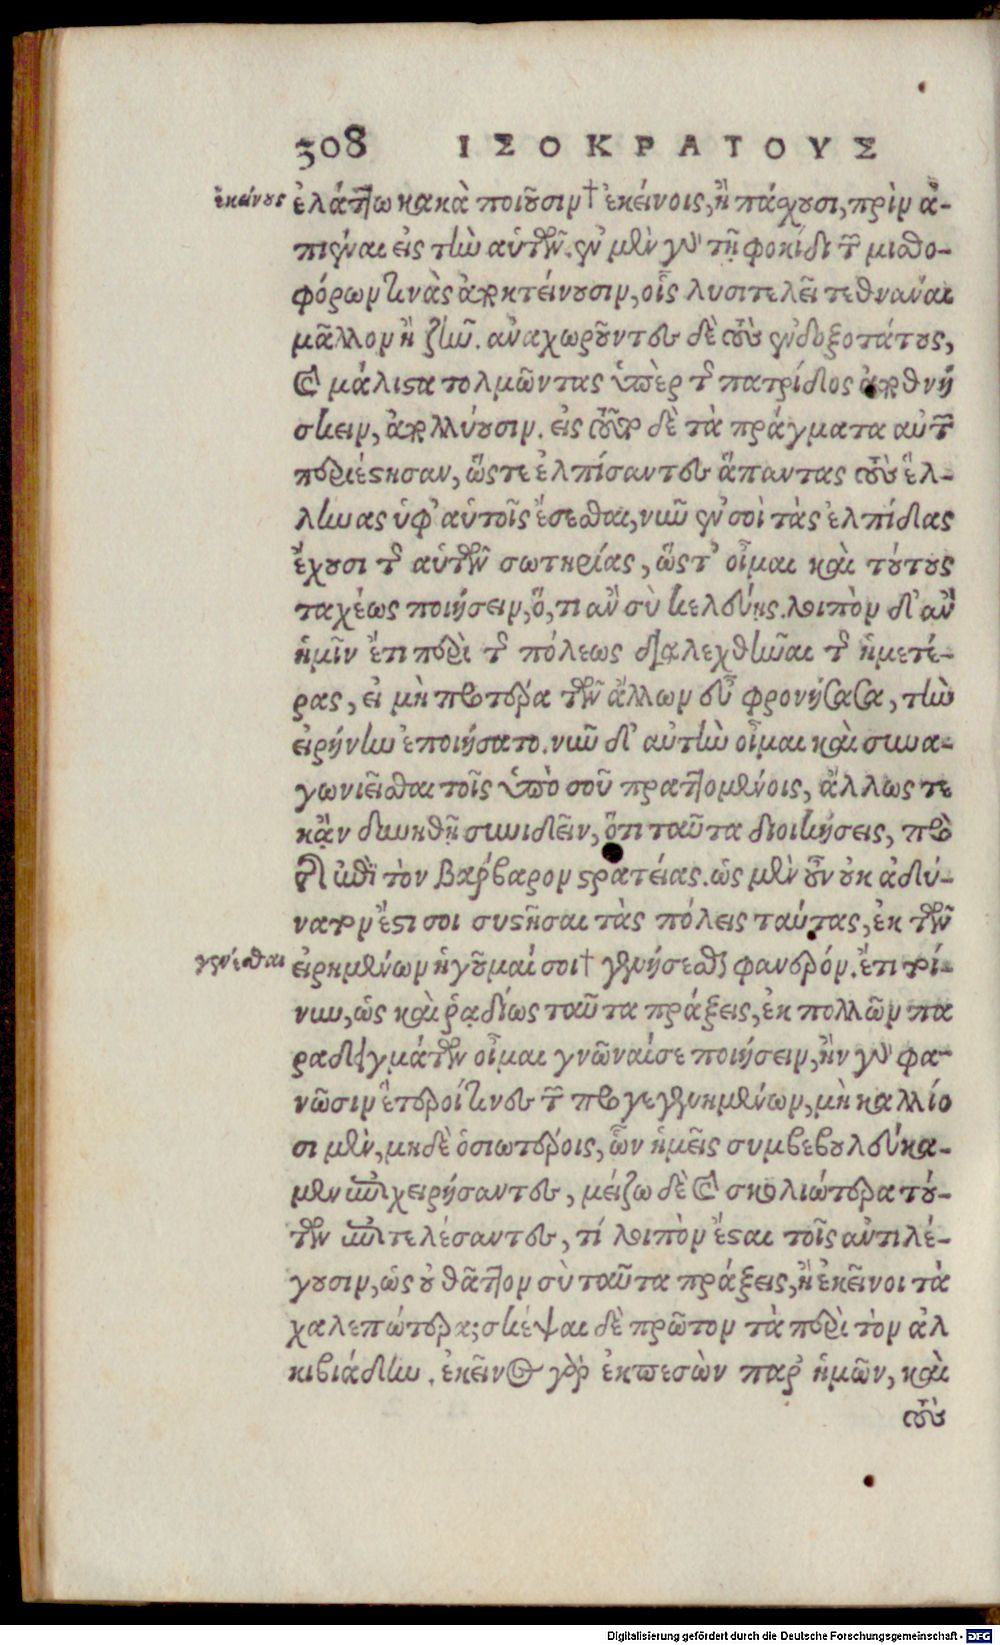 308 ΙΣΟΚΡΑΤΟΥΣ
ἐκείνους
ἐλάττω κακὰ ποιοῦσιν† ἐκείνοις, ἢ πάσχουσι, πρὶν ἀ-
πιέναι εἰς τὴν αὑτῶν. ἐν μὲν γὰρ τῇ φοκίδι τῶν μισθο-
φόρων τινὰς ἀποκτείνουσιν, οἷς λυσιτελεῖ τεθνάναι
μᾶλλον ἢ ζῆν. ἀναχωροῦντες δὲ τοὺς ἐνδοξοτάτους,
καὶ μάλιστα τολμῶντας ὑπὲρ τῆς πατρίδος ἀποθνή
σκειν, ἀπολλύουσιν. εἰς τοῦτο δὲ τὰ πράγματα αὐτῶν
περιέστησαν, ὥστε ἐλπίσαντες ἅπαντας τοὺς ἕλ-
ληνας ὑφ' αὑτοῖς ἔσεσθαι, νῦν ἐν σοὶ τὰς ἐλπίδας
ἔχουσι τῆς αὑτῶν σωτηρίας, ὥστ' οἶμαι καὶ τούτους
ταχέως ποιήσειν, ὅ, τι ἂν σὺ κελεύῃς. λοιπὸν δ' ἂν
ἡμῖν ἔτι περὶ τῆς πόλεως διαλεχθῆναι τῆς ἡμετέ-
ρας, εἰ μὴ προτέρα τῶν ἄλλων εὖ φρονήσασα, τὴν
εἰρήνην ἐποιήσατο. νῦν δ' αὐτὴν οἶμαι καὶ συνα-
γωνιεῖσθαι τοῖς ὑπὸ σοῦ πραττομένοις, ἄλλως τε
κἂν δυνηθῇ συνιδεῖν, ὅτι ταῦτα διοικήσεις, πρὸ
τῆς ἐπὶ τὸν βάρβαρον στρατείας. ὡς μὲν οὖν οὐκ ἀδύ-
νατον ἔστι σοι συστῆσαι τὰς πόλεις ταύτας, ἐκ τῶν
γενέσθαι
εἰρημένων ἡγοῦμαί σοι† γενήσεσθαι φανερόν. ἔτι τοί-
νυν, ὡς καὶ ῥᾳδίως ταῦτα πράξεις, ἐκ πολλῶν πα
ραδειγμάτων οἶμαι γνῶναί σε ποιήσειν, ἢν γὰρ φα-
νῶσιν ἕτεροί τινες τῶν προγεγενημένων, μὴ καλλίο
σι μὲν, μηδὲ ὁσιωτέροις, ὧν ἡμεῖς συμβεβουλεύκα-
μεν ἐπιχειρήσαντες, μείζω δὲ καὶ σκολιώτερα τού-
των ἐπιτελέσαντες, τί λοιπὸν ἔσται τοῖς ἀντιλέ-
γουσιν, ὡς οὐ θᾶττον σὺ ταῦτα πράξεις, ἢ ἐκεῖνοι τὰ
χαλεπώτερα; σκέψαι δὲ πρῶτον τὰ περὶ τὸν ἀλ
κιβιάδην. ἐκεῖνος γὰρ ἐκπεσὼν παρ' ἡμῶν, καὶ
τοὺς
Digitalisierung gefördert durch die Deutsche Forschungsgemeinschaft - DFG